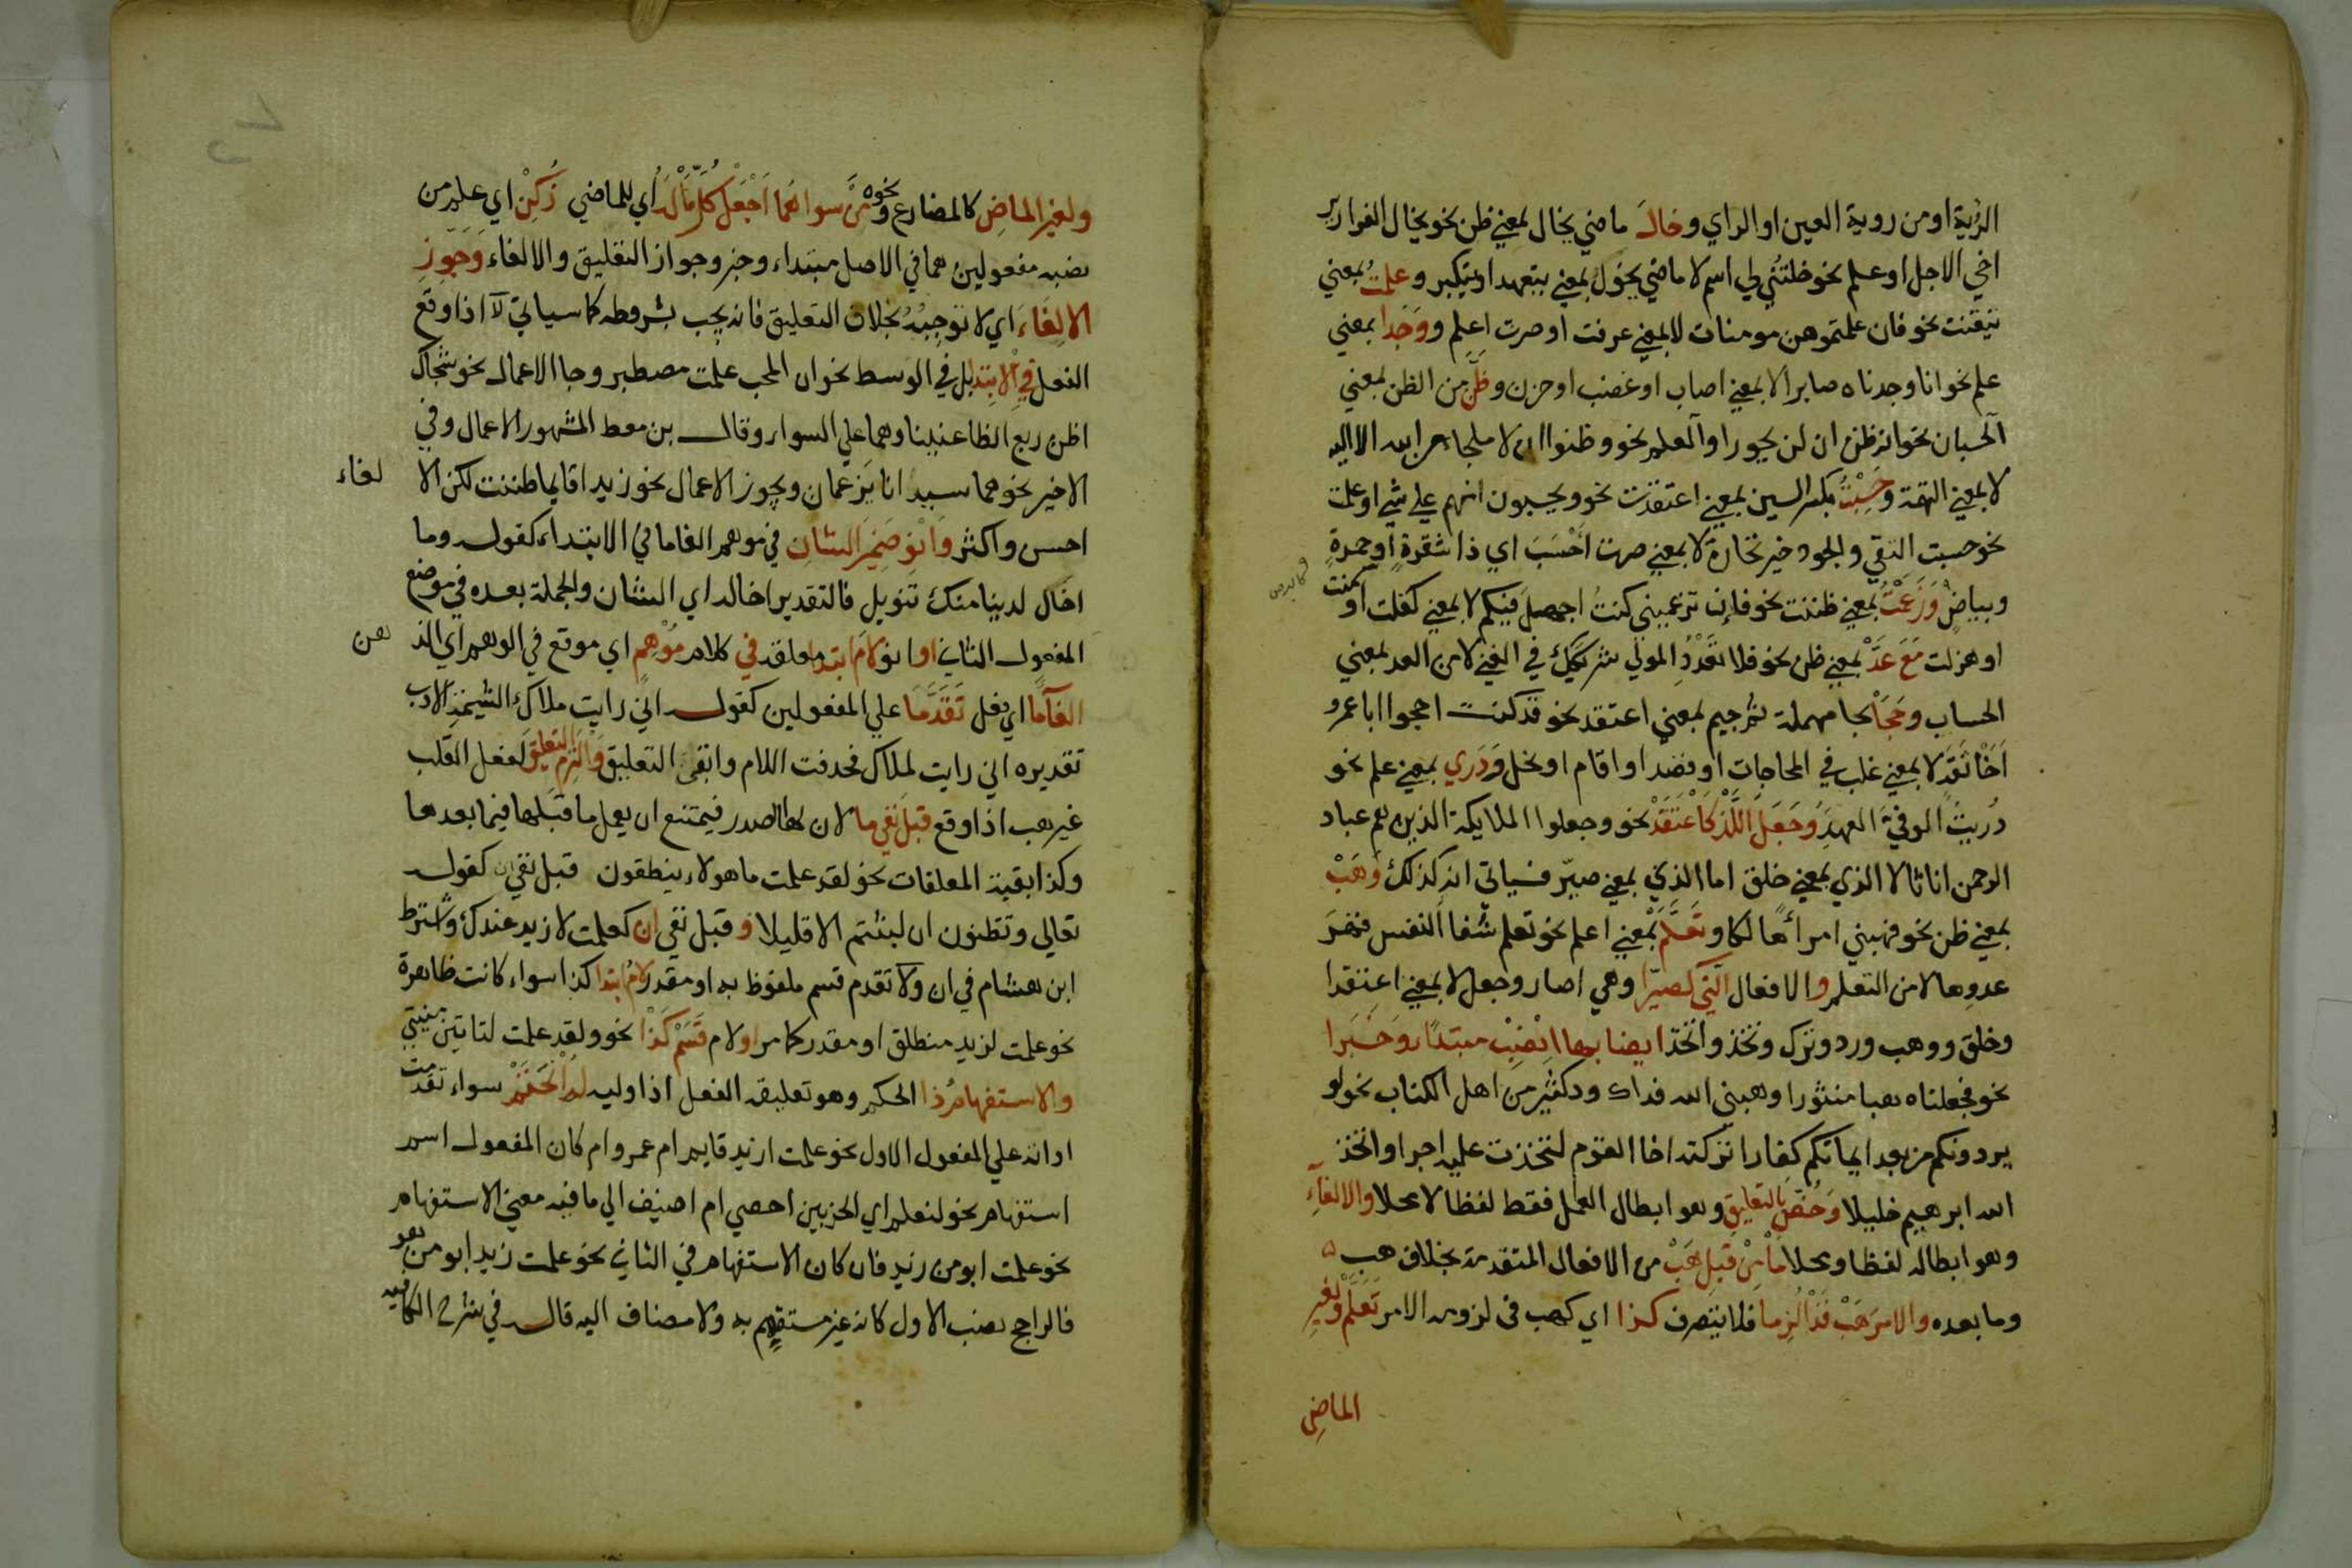 الرؤية او من روية العين او الراي وخال ماضي يخال بمعني ظن نحو يخال الفرار ير
اخي الاجل او علم نحو خلتني لي اسم لا ماضي يخول بمعني يتعهد او يتكبر وعلمت بمعني
تيقنت نحو فان علمتموهن مومنات لا بمعني عرفت او صرت اعلم ووجدا بمعني
علم نحو انا وجدناه صابرا لا بمعني اصاب او غضب او حزن وظن من الظن بمعني
الحسبان نحو انه ظن ان لن يحور او العلم نحو وظنوا ان لا ملجاء من الله الا اليه
لا بمعني التهمة وحسبت بكسر السين بمعني اعتقدت نحو ويحسبون انهم علي شي او علمت
نحو حسبت التقي والجود خير تجارة لا بمعني صرت احسب اي ذا شقرة او حمرة
وبياض وزعمت بمعني ظننت نحو فان تزعميني كنت اجهل فيكم لا بمعني كفلت او سمنت
او هزلت مع عد بمعني ظن نحو فلا تعدد المولي شريكك في الغني لا من العد بمعني
الحساب وحجا بحا مهملة ثم جيم بمعني اعتقد نحو قد كنت احجوا ابا عمرو
اخا ثقة لا بمعني غلب في المحاجات او قصد او اقام او بخل ودري بمعني علم نحو
دريت الوفي العهد وجعل اللذ كاعتقد نحو وجعلوا الملايكة الذين هم عباد
الرحمن اناثا لا الذي بمعني خلق اما الذي بمعني صير فسياتي انه كذلك وهب
بمعني ظن نحو فهبني امرأ هالكا وتعلم بمعني اعلم نحو تعلم شفا النفس قهر
عدوها لا من التعلم والافعال التي كصيرا وهي اصار وجعل لا بمعني اعتقدا
وخلق ووهب ورد وترك وتخذ واتخذ ايضا بها انصب مبتدا وخبرا
نحو فجعلناه هبا منثورا وهبني الله فداك ود كثير من اهل الكتاب نحو لو
يردونكم من بعد ايمانكم كفارا تركته اخا القوم لتخذت عليه اجرا واتخذ
الله ابرهيم خليلا وخص بالتعليق وهو ابطال العمل فقط لفظا لا محلا والالغاء
وهو ابطاله لفظا ومحلا ما من قبل هب من الافعال المتقدمة بخلاف هب
وما بعده والامر هب قد الزما فلا يتصرف كذا اي كهب في لزومه الامر تعلم ولغير
الماضي
ولغير الماض كالمضارع ونحوه من سواهما اجعل كل ما له اي للماضي زكن اي علم من
نصبه مفعولين هما في الاصل مبتداء وخبر وجواز التعليق والالغاء وجوز
الالغاء اي لا توجبه بخلاف التعليق فانه يجب بشروطه كما سياتي لا اذا وقع
الفعل في الابتدا بل في الوسط نحو ان المحب علمت مصطبر وجا الاعمال نحو شجاك
اظن ربع الظاعنينا وهما علي السواء وقال بن معط المشهور الاعمال وفي
الاخير نحو هما سيدانا يزعمان ويجوز الاعمال نحو زيدا قايما ظننت لكن الا لغاء
احسن واكثر وانو ضمير الشان في موهم الغاما في الابتداء كقوله وما
اخال لدينا منك تنويل فالتقدير اخاله اي الشان والجملة بعده في موضع
المفعول الثاني او انو لام ابتدا معلقة في كلام موهم اي موقع في الوهم اي الذهن
الغاما اي فعل تقدما علي المفعولين كقوله اني رايت ملاك الشيمة الادب
تقديره اني رايت لملاك فحذفت اللام وابقي التعليق والتزم التعليق لفعل القلب
غير هب اذا وقع قبل نفي ما لان لها الصدر فيمتنع ان يعمل ما قبلها فيما بعدها
وكذا بقية المعلقات نحو لقد علمت ما هولاء ينطقون قبل نفي ان كقوله
تعالي وتظنون ان لبثتم الا قليلا وقبل نفي ان كعلمت لا زيد عندك واشترط
ابن هشام في ان ولا تقدم قسم ملفوظ به او مقدر لام ابتدا كذا سواء كانت ظاهرة
نحو علمت لزيد منطلق او مقدر كما مر او لام قسم كذا نحو ولقد علمت لتاتين منيتي
والاستفهام ذا الحكم وهو تعليقه الفعل اذا وليه له انحتم سواء تقدمت
اداته علي المفعول الاول نحو علمت ازيد قايم ام عمرو ام كان المفعول اسم
استفهام نحو لنعلم اي الحزبين احصي ام اضيف الي ما فيه معني الاستفهام
نحو علمت ابو من زيد فان كان الاستفهام في الثاني نحو علمت زيد ابو من هو
فالراجح نصب الاول لانه غير مستفهم به ولا مضاف اليه قال في شرح الكافيه